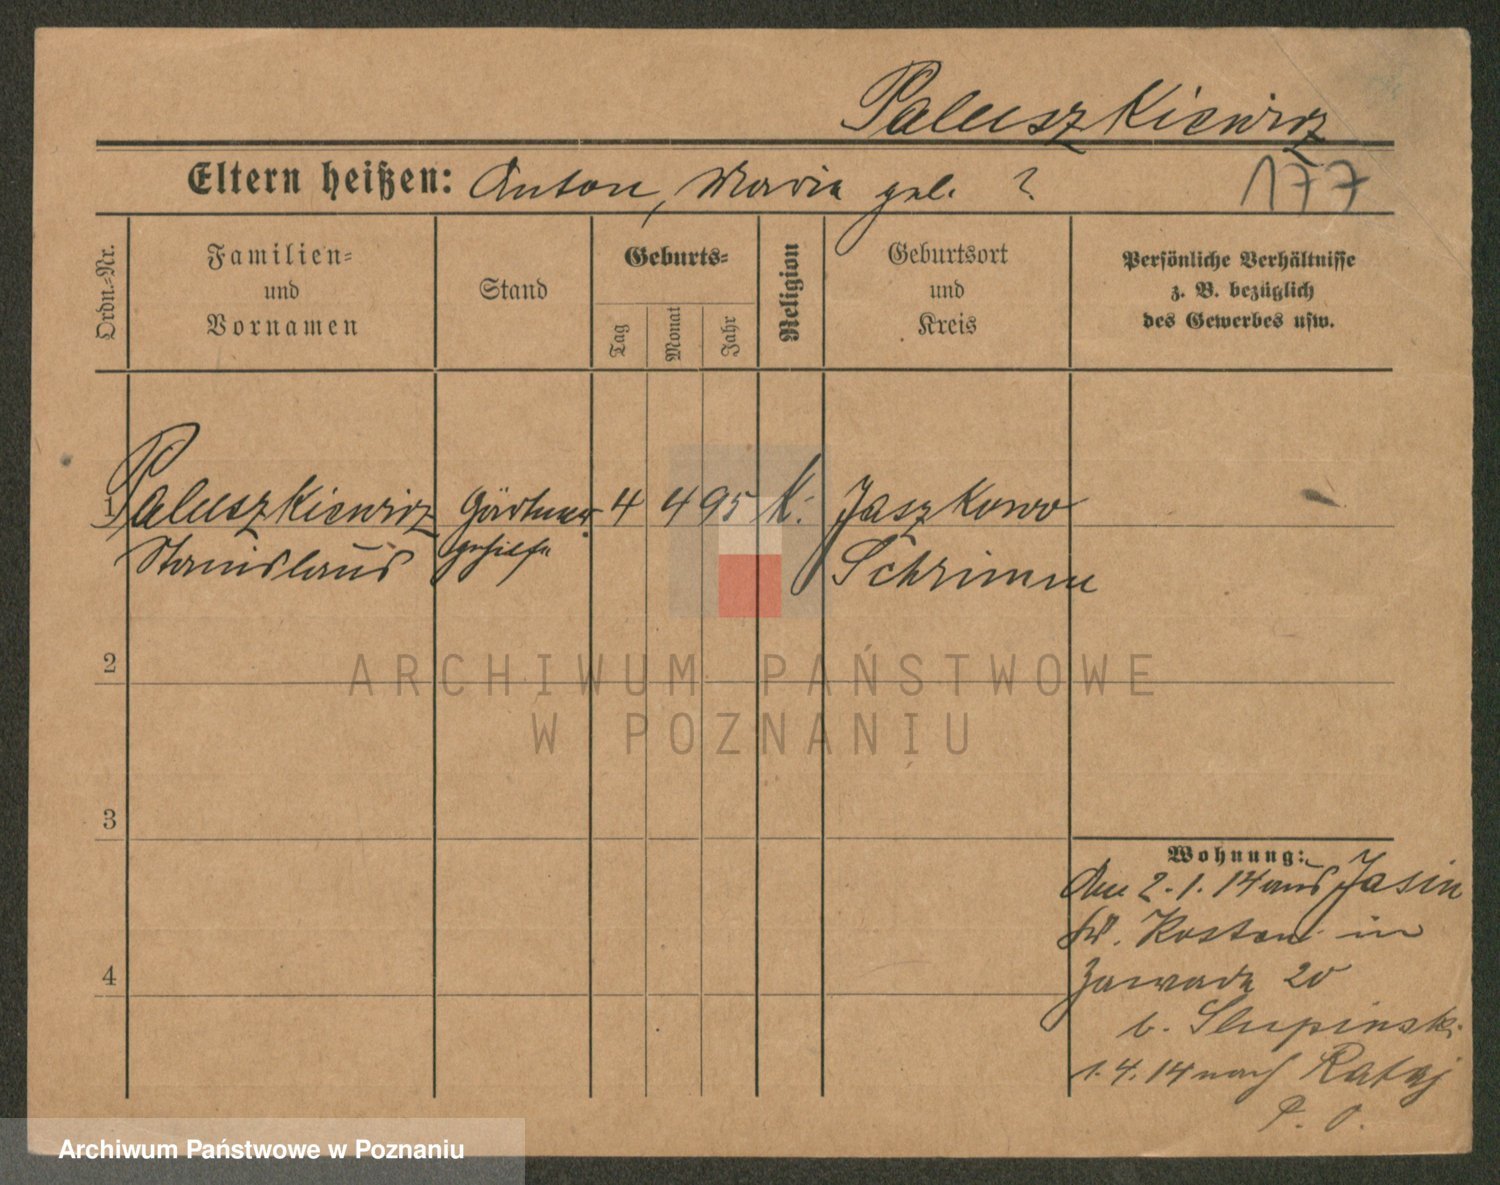 Paluszkiewicz
Eltern heißen: Anton, Maria geb. ?
177
Ordn.-Nr.
Familien-
und
Vornamen
Stand
Geburts-
Tag
Monat
Jahr
Religion
Geburtsort
und
Kreis
Persönliche Verhältnisse
z. B. bezüglich
des Gewerbes usw.
1 Paluszkiewicz Gärtner 4 4 95 K. Jaszkowo
Stanislaus gehilfe Schrimm
2
ARCHIWUM PAŃSTWOWE
W POZNANIU
3
Wohnung:
Am 2.1.14 aus Jasin
Kr. Kosten in
Zawade 20
b. Slupinski
4
1.4.14 nach Rataj
P. O.
Archiwum Państwowe w Poznaniu